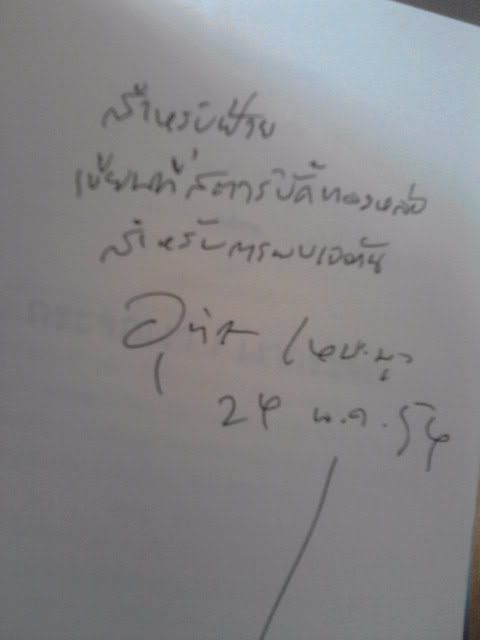 สำหรับฝ้าย
เขียนที่สตาร์บัคทองหล่อ
สำหรับการพบเจอกัน
อุทิศ เหมะมูล
24 พ.ค. 54